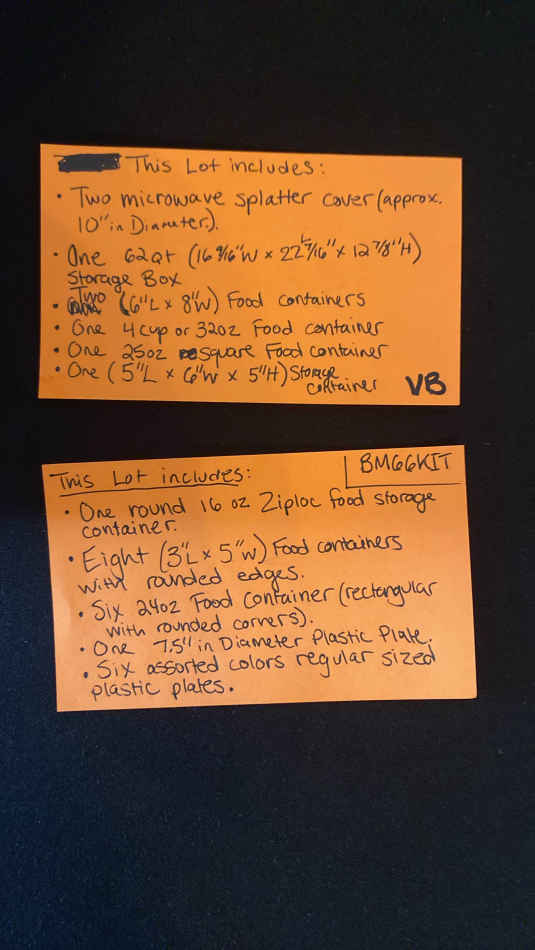 This Lot includes:
• Two microwave splatter cover (approx.
10" in Diameter).
• One 62qt (16 9/16"W x 22 5/16" x 12 7/8"H)
Storage Box
• Two (6"L x 8"W) Food containers
• One 4 cup or 32oz Food container
• One 25oz square Food container
• One (5"L x 6"W x 5"H) Storage
container
VB
This Lot includes:
BM66KIT
• One round 16 oz Ziploc food storage
container.
• Eight (3"L x 5"W) Food containers
with rounded edges.
• Six 24oz Food Container (rectangular
with rounded corners).
• One 7.5" in Diameter Plastic Plate.
• Six assorted colors regular sized
plastic plates.